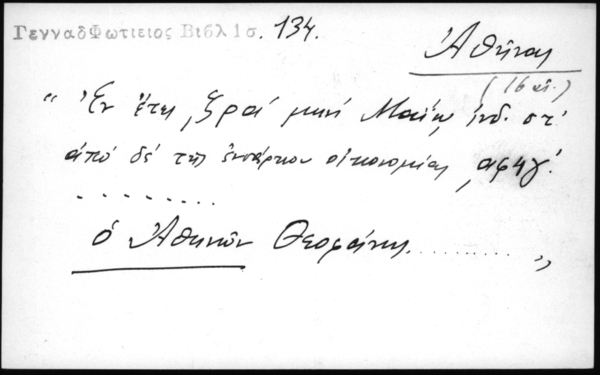 ΓενναδΦωτιειος Βιβλ 1 σ. 134.
Ἀθῆναι
(16 αἰ.)
“ Ἐν ἔτει ͵ζραʹ μηνὶ Μαΐῳ, ἰνδ. στʹ
ἀπὸ δὲ τῆς ἐνσάρκου οἰκονομίας ͵αφηγʹ.
. . . . . . . . .
ὁ Ἀθηνῶν Θεοφάνης . . . . . . . . . „